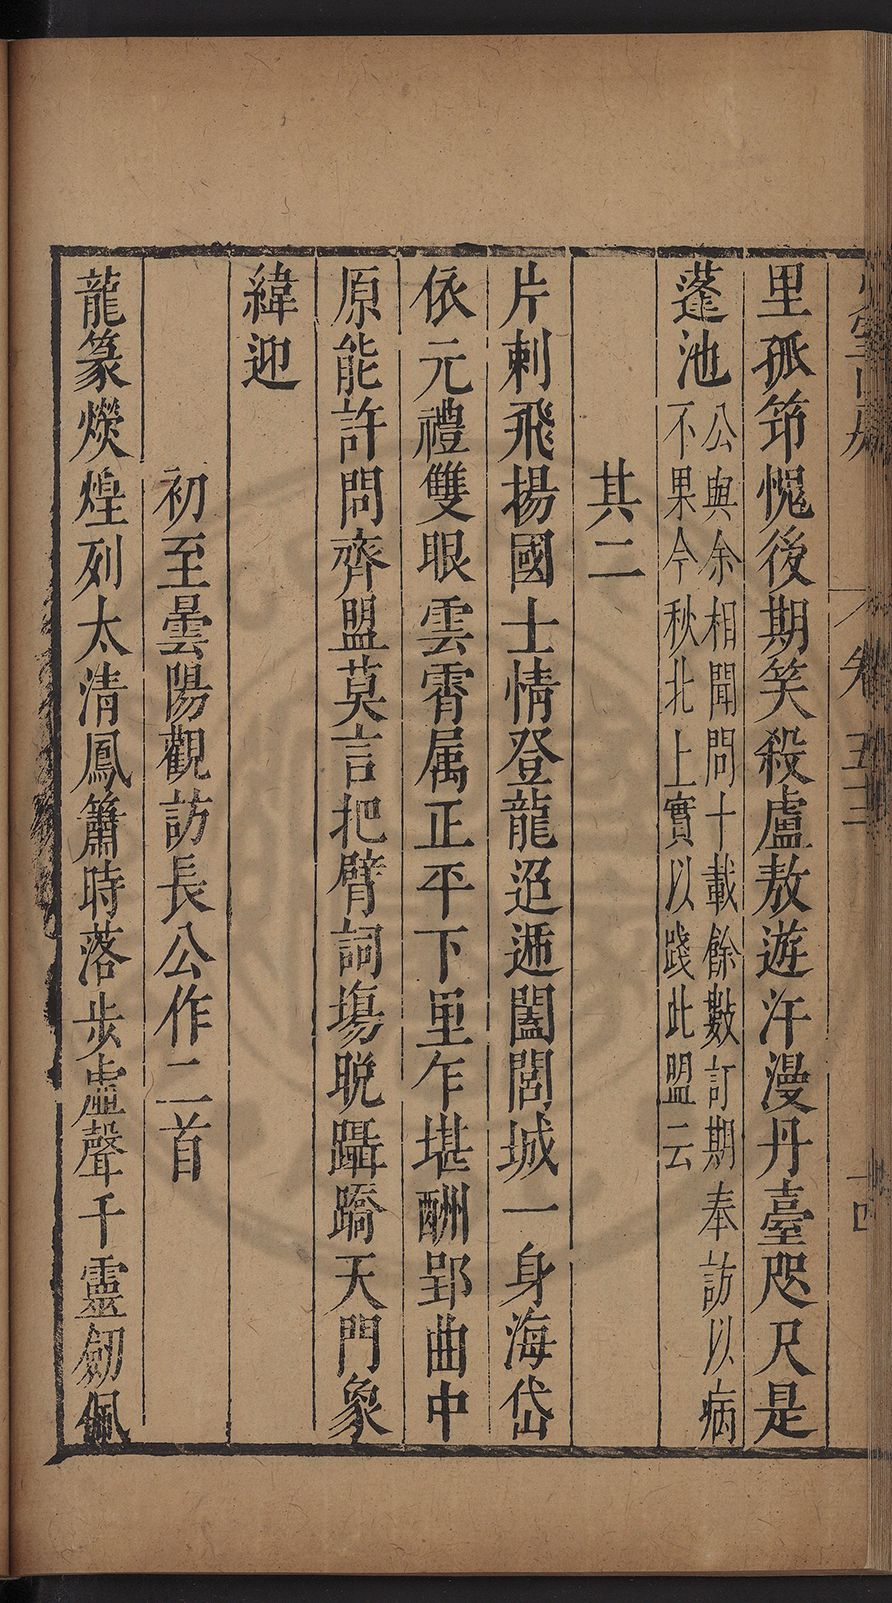 里孤笻愧後期笑殺盧敖遊汗漫丹臺咫尺是
蓬池
公與余相聞問十載餘數訂期奉訪以病
不果今秋北上實以踐此盟云
其二
片刺飛揚國士情登龍迢遞闔閭城一身海岱
依元禮雙眼雲霄属正平下里乍堪酬郢曲中
原能許問齊盟莫言把臂詞塲晩躡蹻天門象
緯迎
初至曇陽觀訪長公作二首
龍篆熒煌列太清鳳簫時落步虛聲千靈劒佩